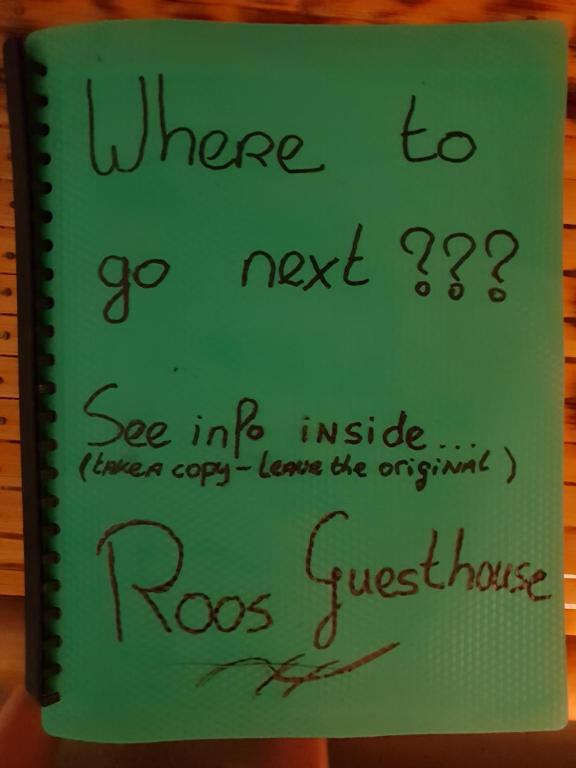 Where to
go next ???
See info inside...
(take a copy - Leave the original)
Roos Guesthouse